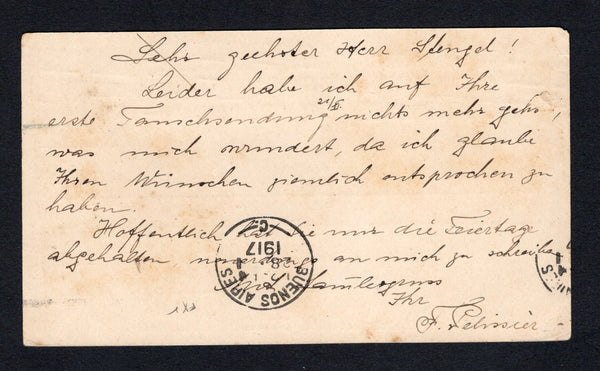 Sehr geehrter Herr Stengel!
Leider habe ich auf Ihre
21/XI
erste Tauschsendung nichts mehr gehört,
was mich wundert, da ich glaube
Ihren Wünschen ziemlich entsprochen zu
haben.
Hoffentlich hat Sie nur die Feiertage
abgehalten neuerdings an mich zu schreiben
Mit Sammlergruss
Ihr
F. Pelissier
BUENOS AIRES
1917